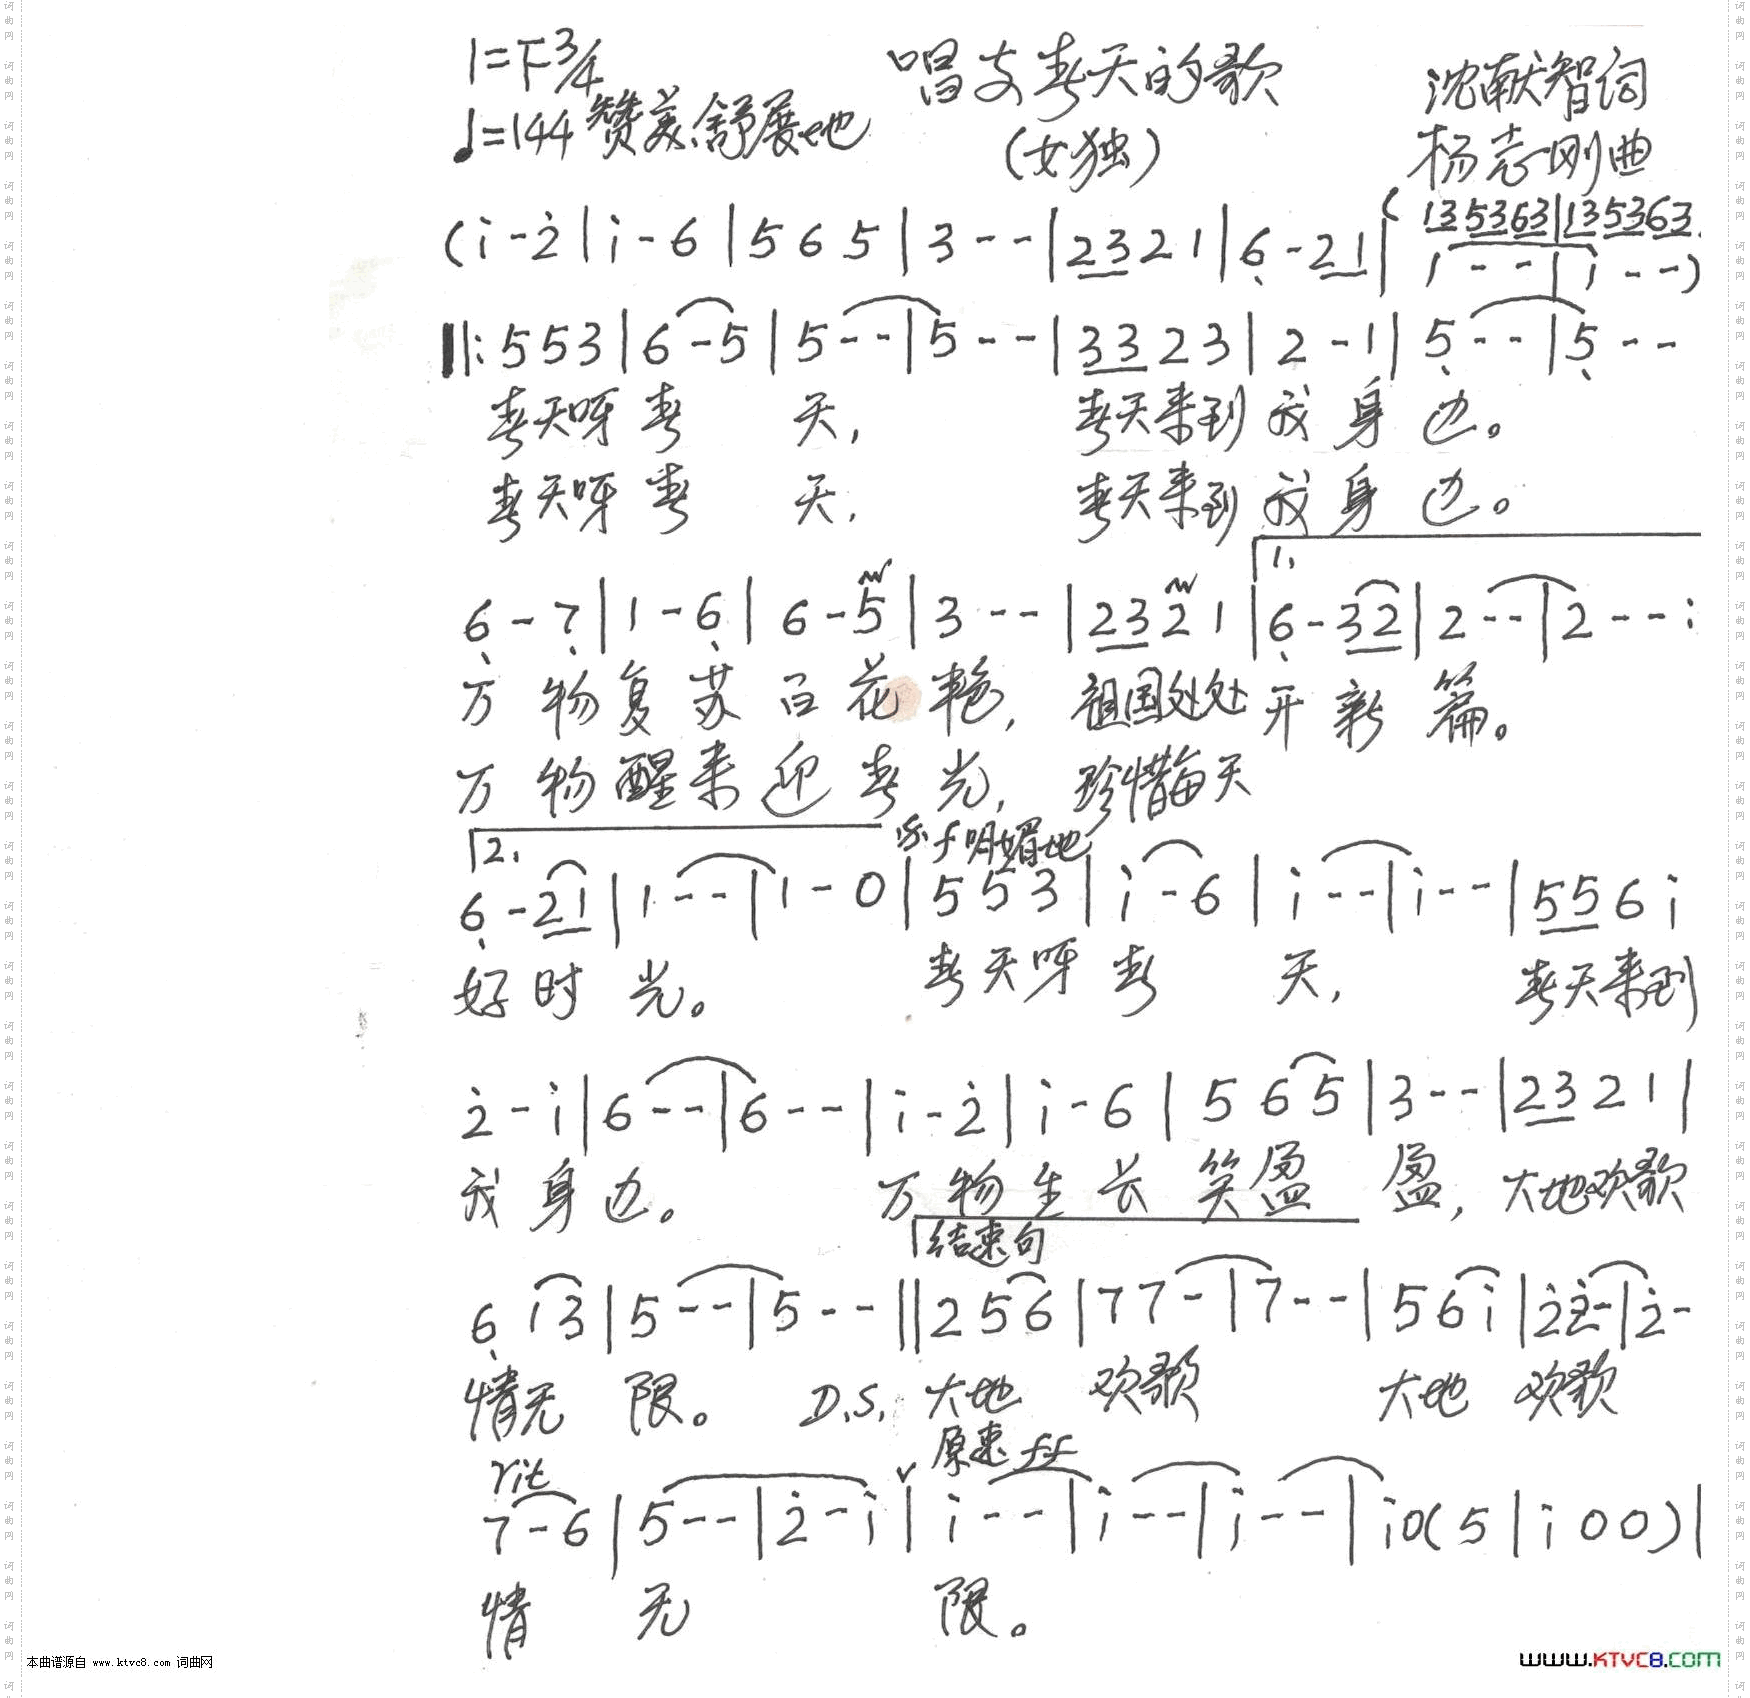 1=F 3/4 唱支春天的歌 沈献智词
♩=144 赞美、舒展地 (女独) 杨志刚曲
13 53 63|13 53 63
(i - 2̇ | i - 6 | 5 6 5 | 3 - - | 2321 | 6̣ - 21 | 1 - - | i - -)
‖: 5 5 3 | 6 - 5 | 5 - - | 5 - - | 3323 | 2 - 1 | 5̣ - - | 5̣ - -
春天呀春 天, 春天来到我身边。
春天呀春 天, 春天来到我身边。
1.
6̣ - 7̣ | 1 - 6̣ | 6 - 5 | 3 - - | 2321 | 6̣ - 32 | 2 - - | 2 - - :
万物复苏百花艳, 祖国处处开新篇。
万物醒来迎春光, 珍惜每天
2. 𝄋 f 明媚地
6̣ - 21 | 1 - - | 1 - 0 | 5 5 3 | i - 6 | i - - | i - - | 556i
好时光。 春天呀春 天, 春天来到
2̇ - i | 6 - - | 6 - - | i - 2̇ | i - 6 | 5 6 5 | 3 - - | 2321 |
我身边。 万物生长笑盈 盈, 大地欢歌
结束句
6̣ 1 3 | 5 - - | 5 - - ‖ 2 5 6 | 7 7 - | 7 - - | 5 6 i | 2̇ 2̇ - | 2̇ -
情无 限。 D.S. 大地 欢歌 大地 欢歌
rit 原速 ff
7 - 6 | 5 - - | 2̇ - i | i - - | i - - | i - - | i 0 (5 | i 0 0) |
情 无 限。
本曲谱源自 www.ktvc8.com 词曲网
www.KTVC8.com